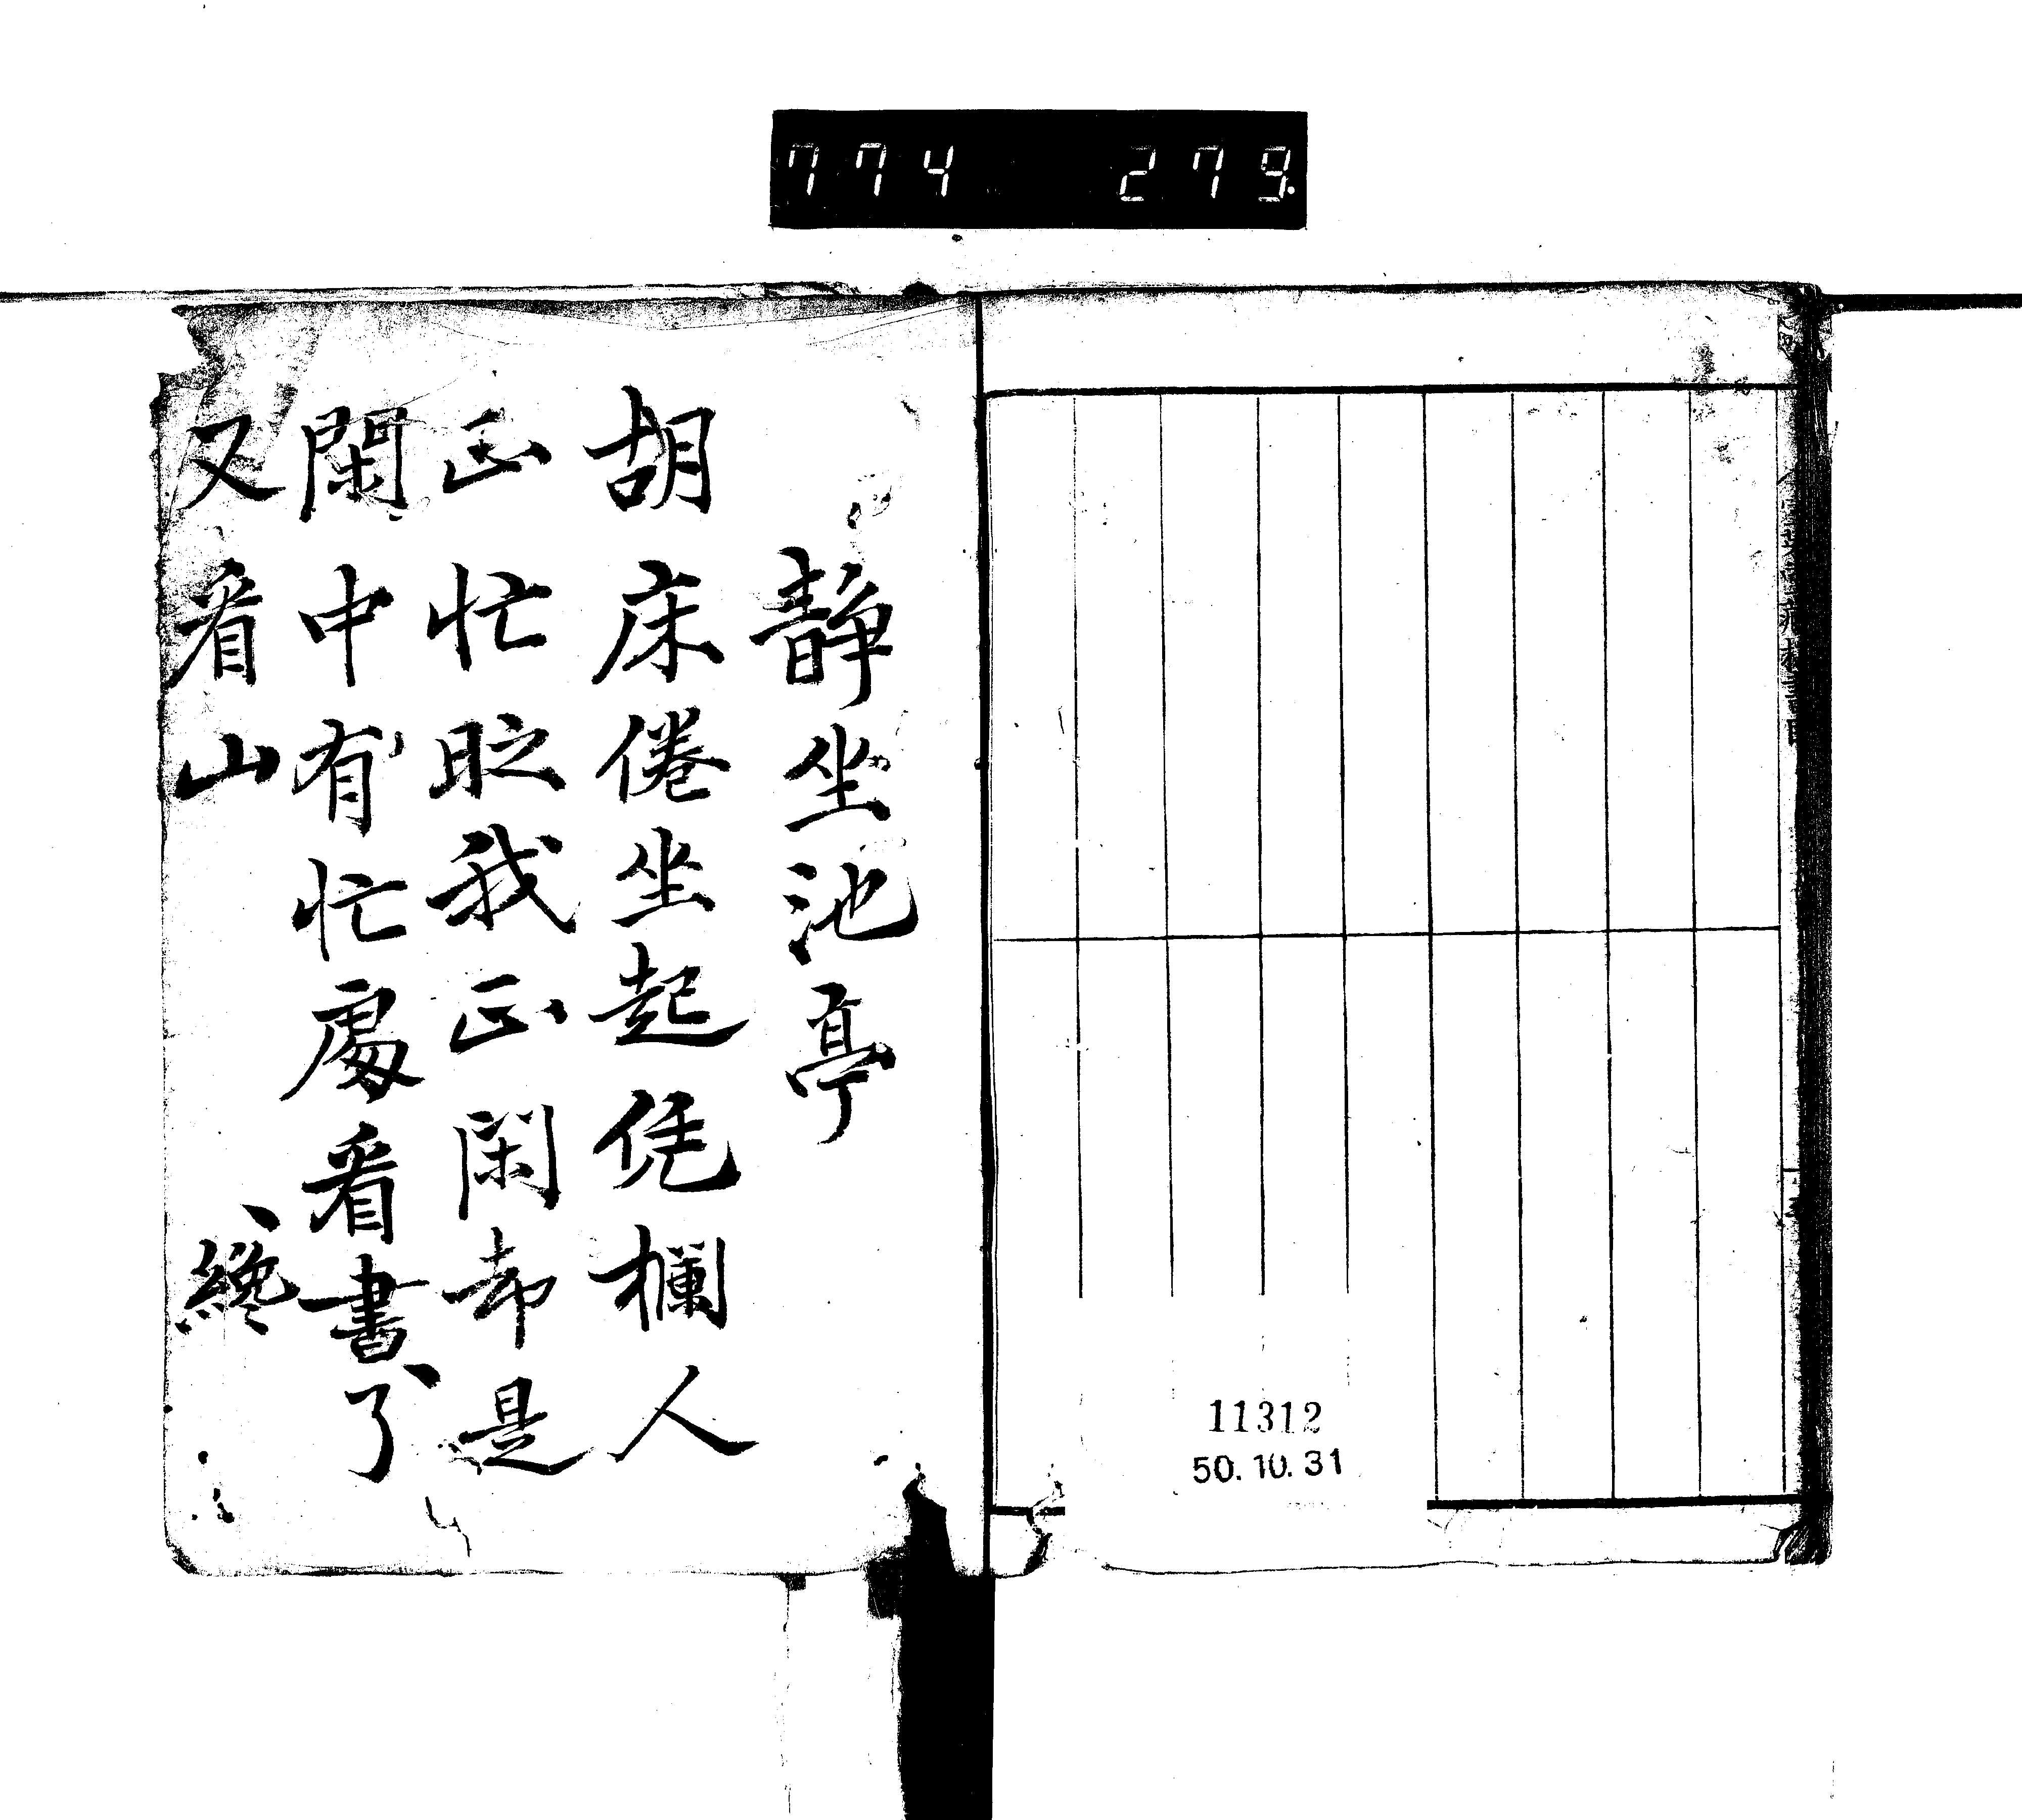 774 279
11312
50.10.31
静坐池亭
胡床倦坐起凭欄人
正忙時我正閑却是
閑中有忙處看書了
又看山 纔